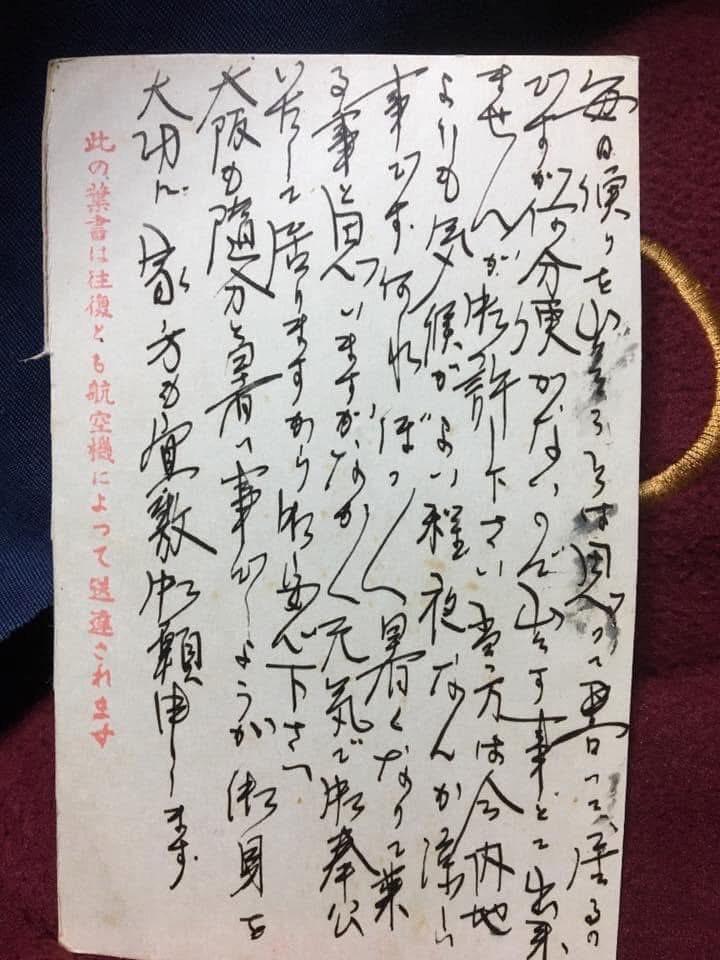 毎日便りを出さうとは思つて書いて居るの
ですが何分便がないので出す事とて出来
ませんが御許し下さい 当方は今内地
よりも気候がよい程夜なんか涼しい
事です 何れぼつ〱暑くなつて来
る事と思つていますがなか〱元気で御奉公
して居りますから御安心下さい
大阪も随分と暑い事でしようが御身を
大切に 家の方も宜敷御頼申します
此の葉書は往復とも航空機によつて送達されます